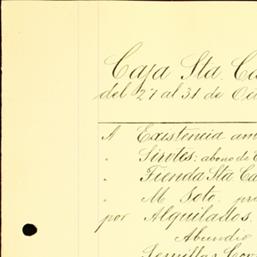 Caja Sta. Ca
del 27 al 31 de Oc
A Existencia an
" Sirotes: abono de
" Tienda Sta Ca
" M. Soto. pr
por Alquilados
Abundio
Semillas Cor